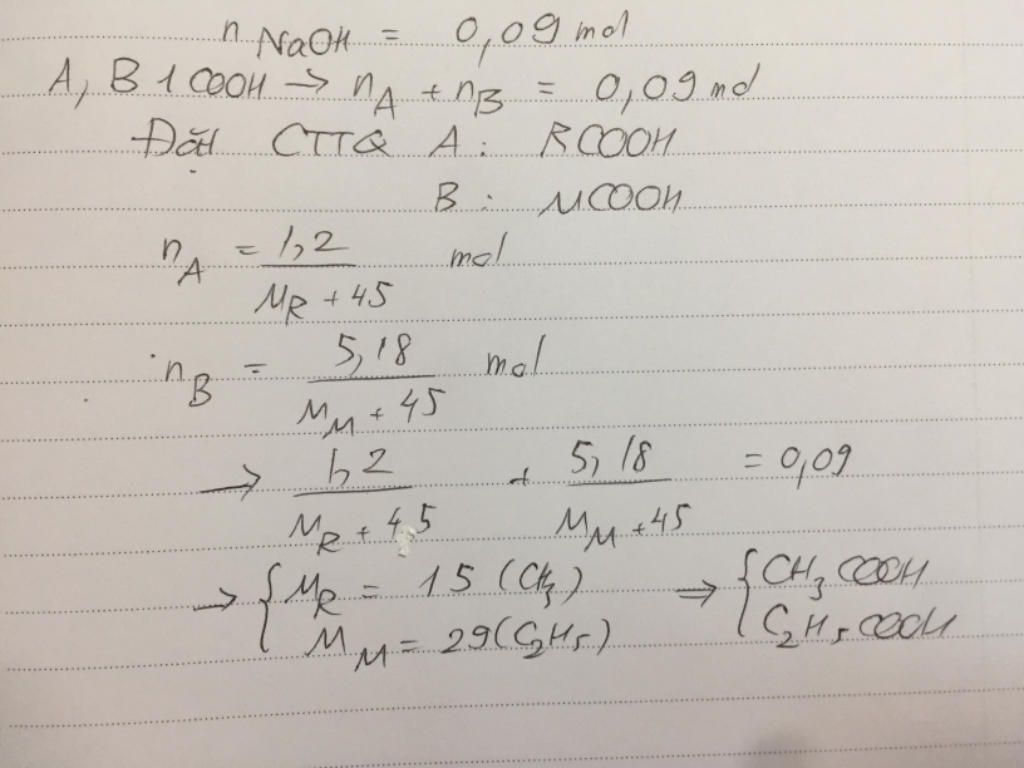 n NaOH = 0,09 mol
A, B 1 COOH → nA + nB = 0,09 mol
Đặt CTTQ A : RCOOH
B : MCOOH
nA = 1,2 / (MR + 45) mol
nB = 5,18 / (MM + 45) mol
→ 1,2 / (MR + 45) + 5,18 / (MM + 45) = 0,09
→ { MR = 15 (CH3) → { CH3COOH
MM = 29 (C2H5) C2H5COOH